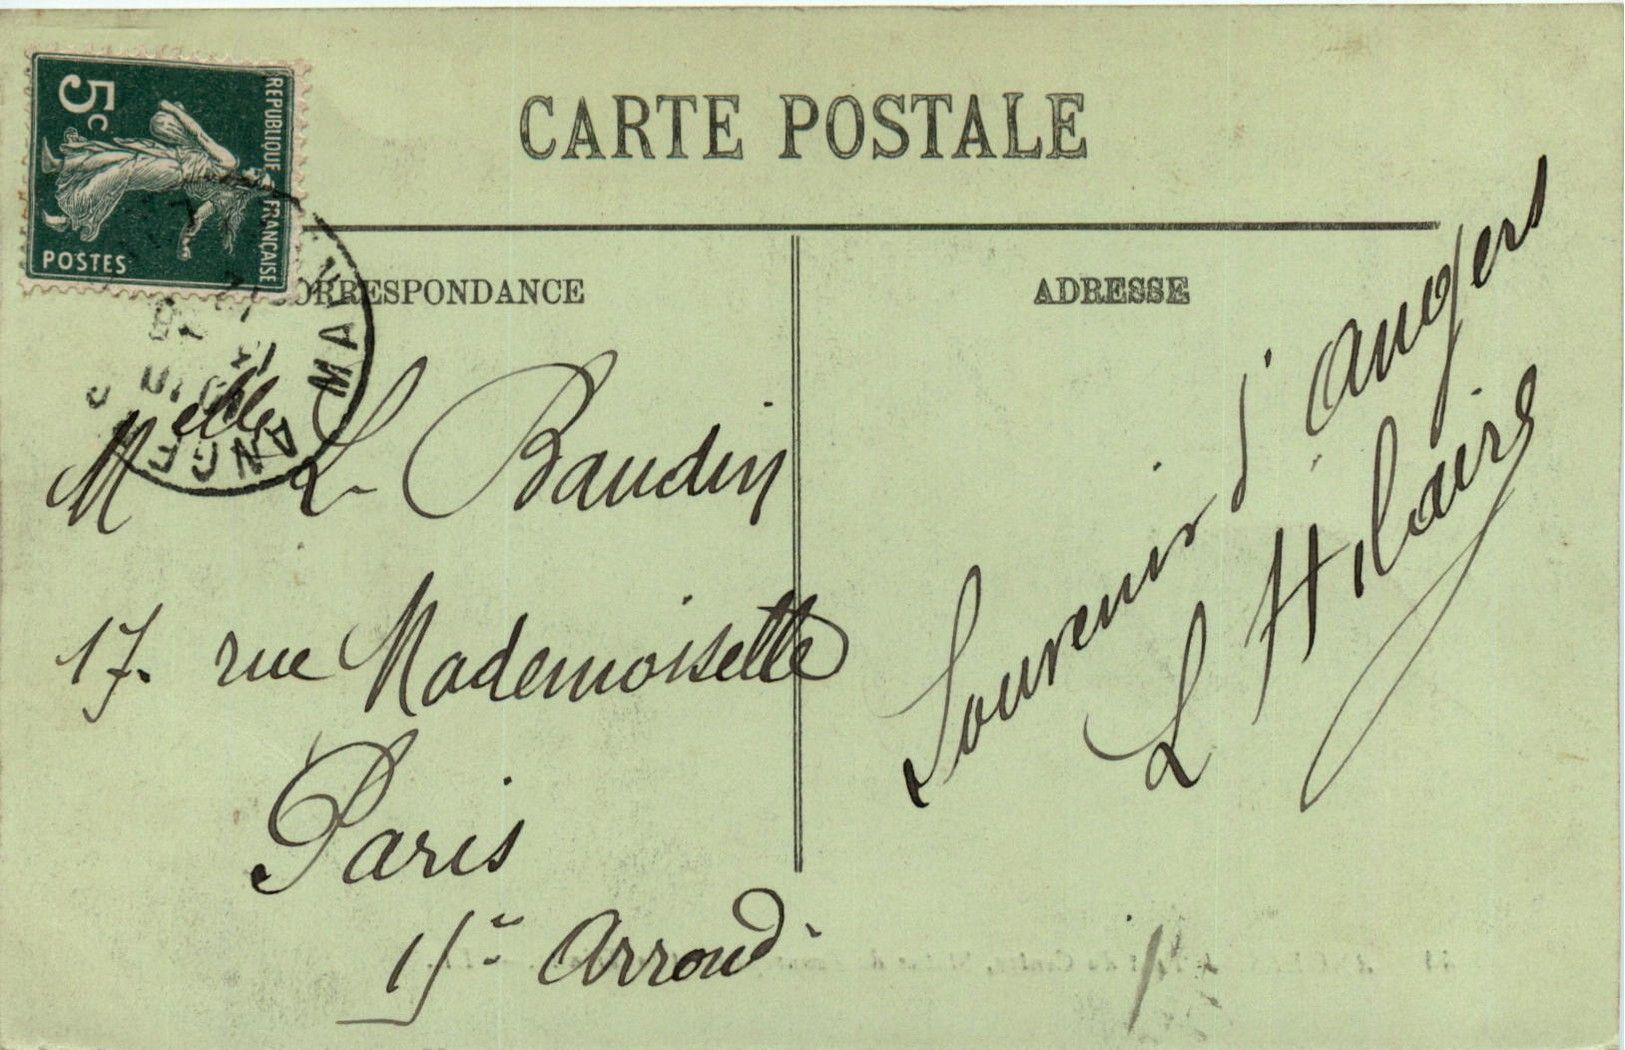 REPUBLIQUE FRANÇAISE
5c
POSTES
CARTE POSTALE
CORRESPONDANCE
ADRESSE
Melle L Baudin
17. rue Mademoiselle
Paris
15e Arrond
Souvenir d'Angers
L Hilaire